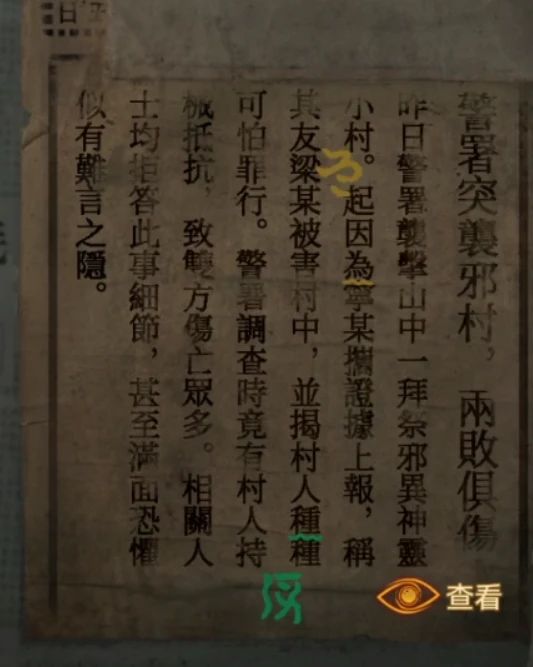 警署突襲邪村，兩敗俱傷
昨日警署襲擊山中一拜祭邪異神靈
小村。起因為寧某攜證據上報，稱
其友梁某被害村中，並揭村人種種
可怕罪行。警署調查時竟有村人持
械抵抗，致雙方傷亡眾多。相關人
士均拒答此事細節，甚至滿面恐懼
似有難言之隱。
查看